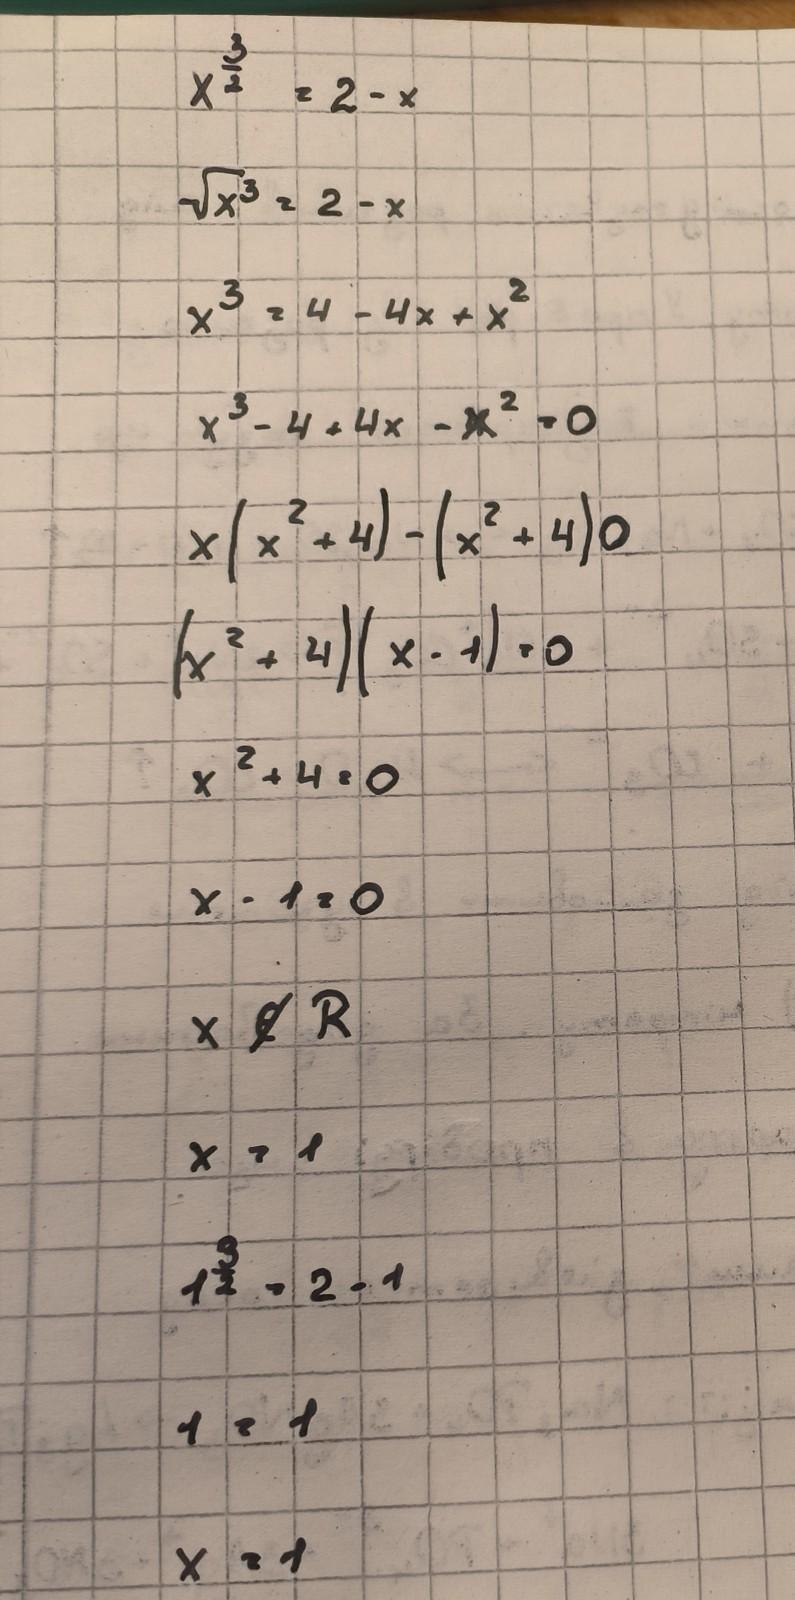 x^(3/2) = 2 - x
√x^3 = 2 - x
x^3 = 4 - 4x + x^2
x^3 - 4 + 4x - x^2 = 0
x(x^2 + 4) - (x^2 + 4)0
(x^2 + 4)(x - 1) = 0
x^2 + 4 = 0
x - 1 = 0
x ∉ R
x = 1
1^(3/2) = 2 - 1
1 = 1
x = 1